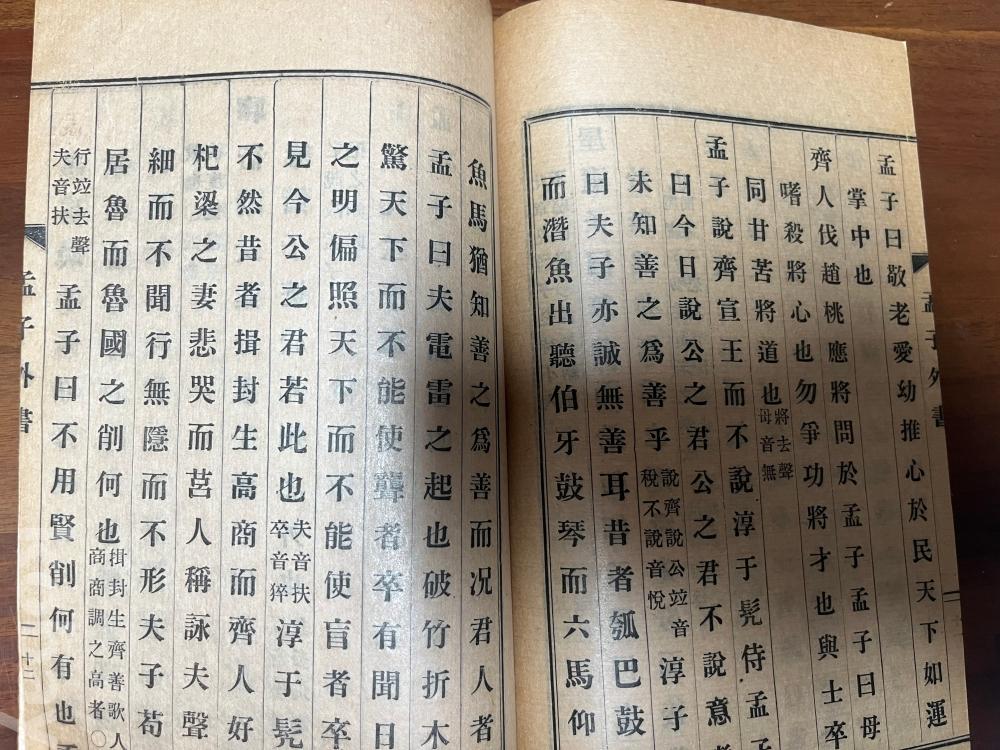 孟子外書
孟子曰敬老愛幼推心於民天下如運
掌中也
齊人伐趙桃應將問於孟子孟子曰母
嗜殺將心也勿爭功將才也與士卒
同甘苦將道也將去聲
母音無
孟子說齊宣王而不說淳于髡侍孟子
曰今日說公之君公之君不說意者
未知善之為善乎說齊說公竝音
稅不說音悅淳子
曰夫子亦誠無善耳昔者瓠巴鼓
而潛魚出聽伯牙鼓琴而六馬仰
魚馬猶知善之為善而况君人者
孟子曰夫電雷之起也破竹折木
驚天下而不能使聾者卒有聞日
之明偏照天下而不能使盲者卒
見今公之君若此也夫音扶
卒音猝淳于髡
不然昔者揖封生高商而齊人好
杞梁之妻悲哭而莒人稱詠夫聲
細而不聞行無隱而不形夫子苟
居魯而魯國之削何也揖封生齊善歌人
商商調之高者〇
行竝去聲
夫音扶孟子曰不用賢削何有也
孟子外書
二十二